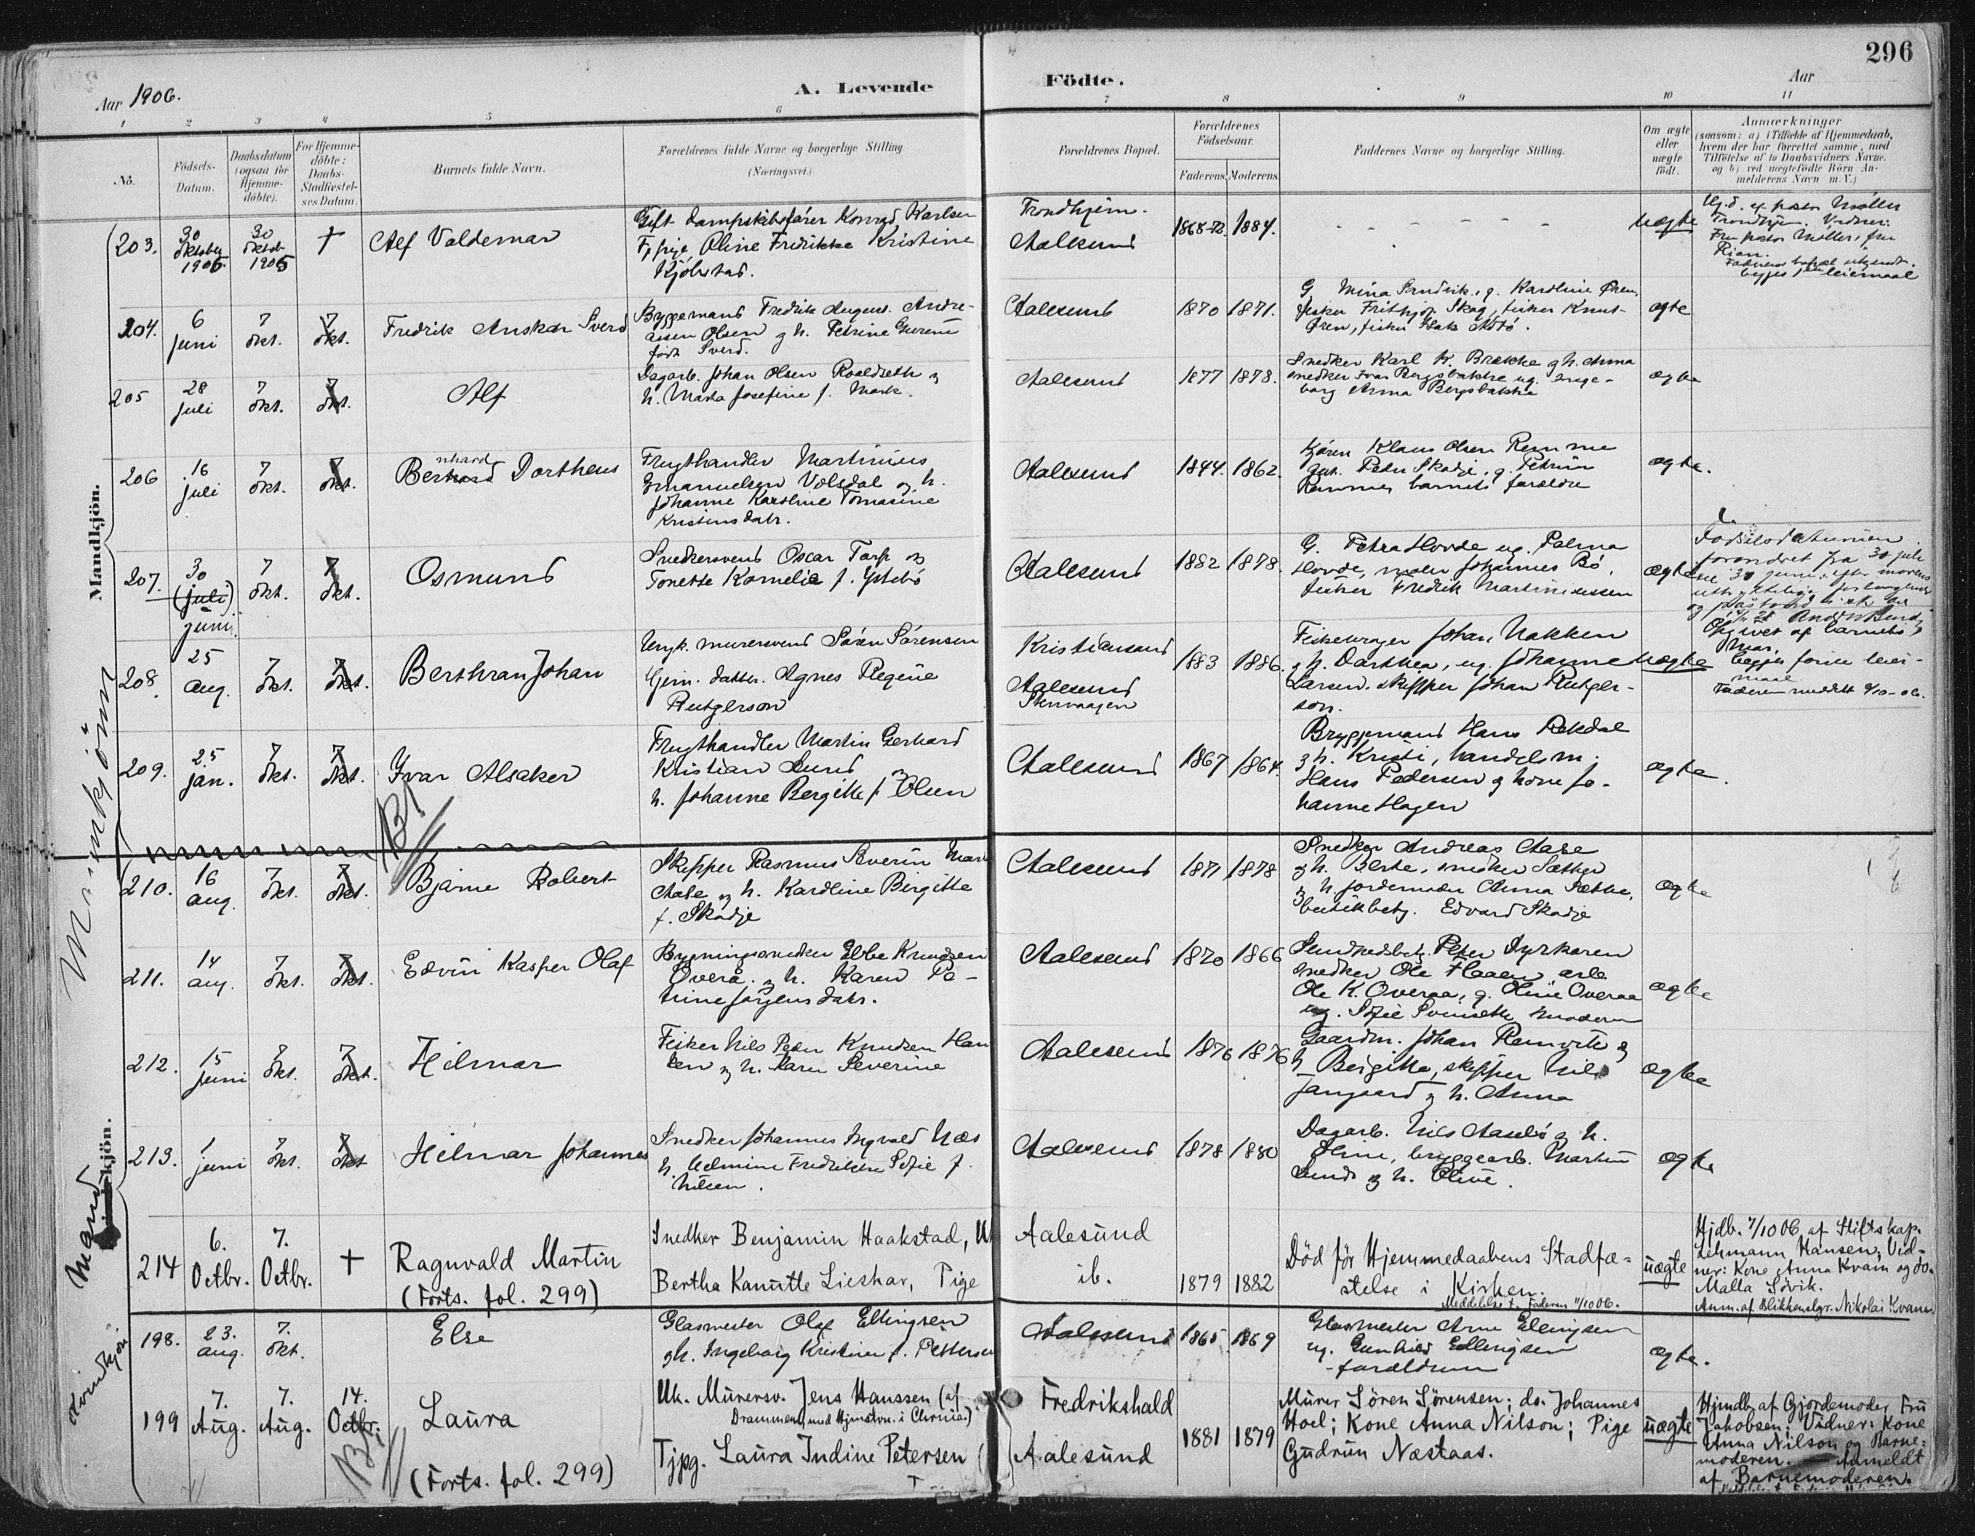 296
Aar 1906.
A. Levende
Födte.
Aar
1 2 3 4 5 6 7 8 9 10 11
No.
Födsels-Datum.
Daabsdatum (ogsaa för Hjemme-döbte).
For Hjemme-döbte: Daabs-Stadfæstel-ses Datum.
Barnets fulde Navn.
Forældrenes fulde Navne og borgerlige Stilling
(Næringsvei.)
Forældrenes Bopæl.
Forældrenes Födselsaar.
Faderens. Moderens.
Faddernes Navne og borgerlige Stilling.
Om ægte eller uægte födt.
Anmærkninger
(saasom: a) i Tilfælde af Hjemmedaab,
hvem der har forrettet samme, med
Tilföielse af to Daabsvidners Navne.
og b) ved uægtefödte Börn An-
melderens Navn m. V.)
Mandkjön.
203.
30 oktober 1905
30 oktob 1905
†
Alf Valdemar
Gift Dampskibsfører Konrad Karlsen
Oline Fredrikke Kristine
Kjöbstad.
Trondhjem.
Aalesund
1868 1884.
uægte
204.
6 juni
7 okt.
7 okt.
Fredrik Anskar Sverd
Byggemand Fredrik August Andre-
assen Olsen og h. Petrine
født Sverd.
Aalesund
1870 1871.
ægte
205
28 juli
7 okt.
7 okt.
Alf
Dagarb. Johan Olsen Roaldseth og
h. Marta Josefine f. Mork.
Aalesund
1877 1878.
Snedker Karl K. Brække og h. Anna
snedker Ivar Bergsbakke ug. Inge-
borg Anna Bergsbakke
ægte
206
16 juli
7 okt.
7 okt.
Bernhard Dortheus
Frugthandler Martinius
Emanuelsen Volsdal og h.
Johanne Karoline Tomasine
Kristensdatr.
Aalesund
1844. 1862.
Klaus Olsen Remme
Peder Skodje, g. Petrine
Remme, barnets forældre
ægte.
207.
30 (juli) juni.
7 okt.
7 okt.
Osmund
Snedkersvend Oscar Tarp og
Tonette Kornelie f. Ystebø
Aalesund
1882 1878.
G. Petra Hovde ug. Palma
Hovde, maler Johannes Bø,
fisker Fredrik Martinussen
ægte
Fødselsdatumen
forandret fra 30 juli
til 30 juni
208.
25 aug.
7 okt.
7 okt.
Berthran Johan
Ungk. murersvend Søren Sørensen
Gjm. datter. Agnes Regine
Rutgerson
Kristiansund
Aalesund
1883 1886.
Fiskevrager Johan Nakken
og h. Dorthea, ug. Johanne
Larsen. skipper Johan Rutger-
son.
uægte
Opgivet af barnets
Mor.
209.
25 jan.
7 okt.
7 okt.
Ivar Alsaker
Frugthandler Martin Gerhard
Kristian Lund og
h. Johanne Bergitte f. Olsen
Aalesund
1867 1864.
Bryggemand Hans Rekdal
og h. Kristi, handelsm.
Hans Pedersen og kone Jo-
hanne Hagen
ægte.
210.
16 aug.
7 okt.
7 okt.
Bjarne Robert
Skipper Rasmus Severin
Aase og h. Karoline Birgitte
f. Skodje
Aalesund
1871 1878
Snedker Andreas Aase
og h. Berte, snedker Sæther
og h. jordemoder Anna Sæthre,
butikbetj. Edvard Skodje
ægte
211.
14 aug.
7 okt.
7 okt.
Edvin Kasper Olaf
Bygningssnedker Ebbe Knudsen
Overå og h. Karen Pe-
trine Jørgensdatr.
Aalesund
1870 1866
Peter Dyrkoren
snedker Ole Flaaen, arb.
Ole K. Overaa, g. Oline Overaa
ug. Sofie Moderen
ægte
212.
15 juni
7 okt.
7 okt.
Hilmar
Fisker Nils Peder Knudsen Han
ken og h. Karen Severine
Aalesund
1876 1876
Gaardm. Johan Remvik og
h. Bergitte, skipper Nils
Jangaard og h. Anna
ægte
213.
1 juni
7 okt.
7 okt
Hilmar Johannes
Snedker Johannes Ingvald Næs
h. Helmine Fredrikke Sofie f.
Nilsen.
Aalesund
1878 1880
Dagarb. Nils Aasebø og h.
Oline, bryggearb. Martin
Lunde og h. Oline.
ægte
214
6. Octbr.
7. Octbr.
†
Ragnvald Martin
(Forts. fol. 299)
Snedker Benjamin Haakstad,
Bertha Kanutte Lieshar, Pige
Aalesund
ib.
1879 1882
Død før Hjemmedaabens Stadfæ-
stelse i Kirken.
Meddelelse t. Faderen 11/10 06.
uægte
Hjdb. 7/10 06 af Stiftskap.
Lehmann Hansen; Vid-
ner: Kone Anna Kvam og do.
Malla Søvik.
Anm. af Blikkenslgr. Nikolai Kvam
Mand
kjön.
Kvindkjön
198.
23. aug.
7. okt.
Else
Glasmester Olaf Ellingsen
og h. Ingeborg Kristine f. Pettersen
Aalesund
1865 1869
Glasmester Arne Ellingsen
ug. Gunhild Ellingsen
forældrene
ægte.
199
7. Aug.
7. Aug.
14. Octbr.
Laura
(Forts. fol. 299)
Uk. Murersv. Jens Hanssen (af
Drammen, med Hjemstvn. i Chrnia)
Tjpg. Laura Indine Petersen
Fredrikshald
Aalesund
1881 1879
Murer Søren Sørensen; do. Johannes
Hoel; Kone Anna Nilson; Pige
Gudrun Næstaas.
uægte
Hjmdb. af Gjordemoder Fru
Jakobsen; Vidner: Kone
Anna Nilson og Barne-
moderen. Anmeldt
af Barnemoderen.